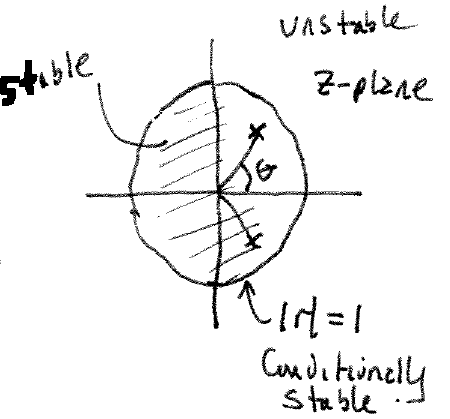 unstable
stable
z-plane
θ
|r| = 1
Conditionally
stable